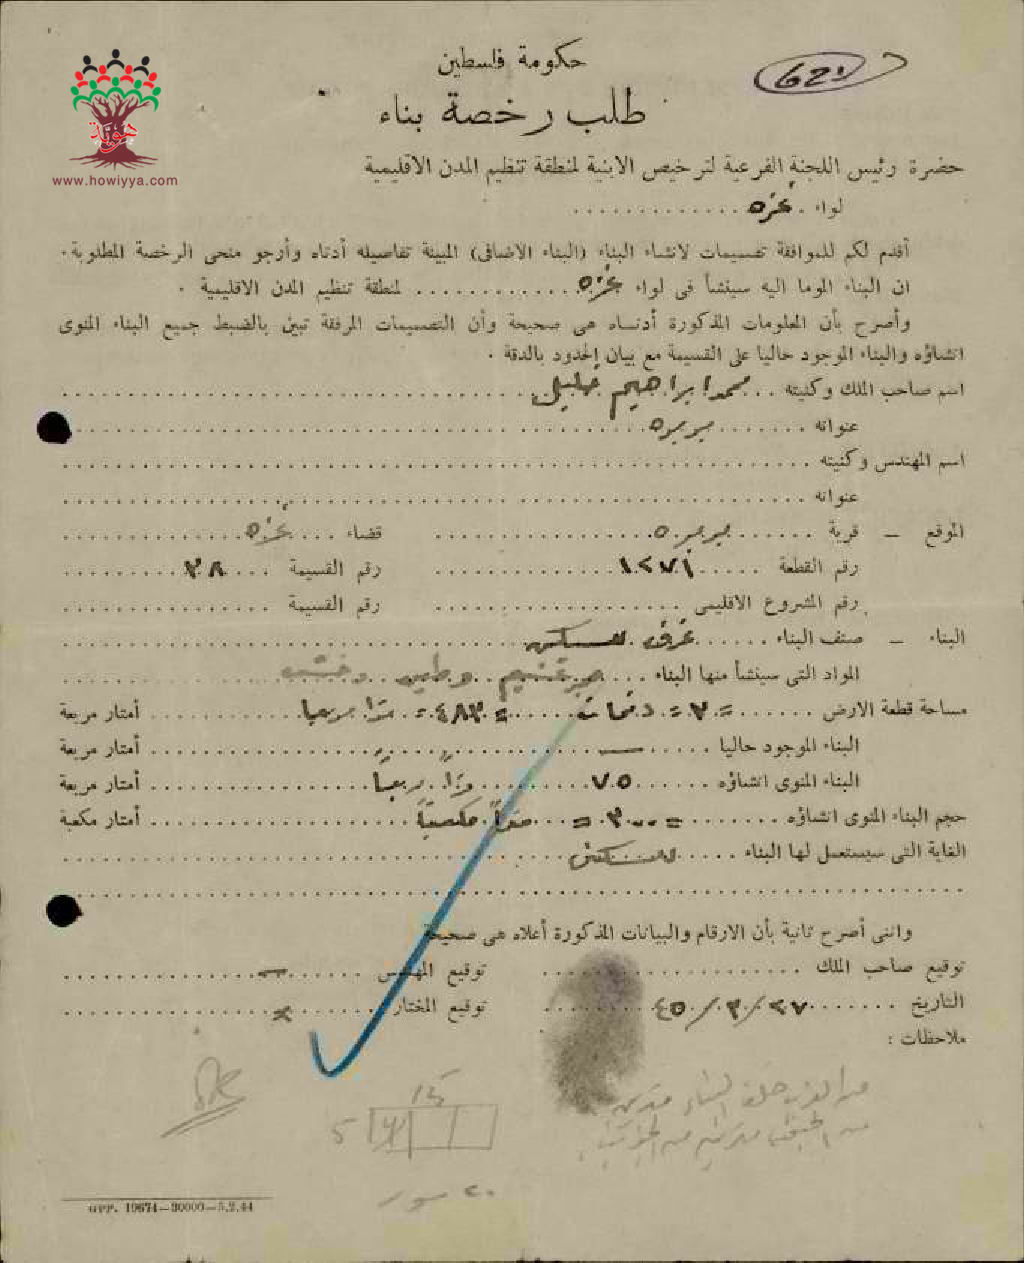 حكومة فلسطين
621
طلب رخصة بناء
هوية
www.howiyya.com
حضرة رئيس اللجنة الفرعية لترخيص الابنية لمنطقة تنظيم المدن الاقليمية
لواء غزه
أقدم لكم للموافقة تصميمات لانشاء البناء (البناء الاضافى) المبينة تفاصيله أدناه وأرجو منحى الرخصة المطلوبة.
ان البناء الموما اليه سينشأ فى لواء غزه لمنطقة تنظيم المدن الاقليمية .
وأصرح بأن المعلومات المذكورة أدنــاه هى صحيحة وأن التصميمات المرفقة تبين بالضبط جميع البناء المنوى
انشاؤه والبناء الموجود حاليا على القسيمة مع بيان الحدود بالدقة .
اسم صاحب الملك وكنيته محمد ابراهيم خليل
عنوانه بربره
اسم المهندس وكنيته
عنوانه
الموقع – قرية بربره قضاء غزه
رقم القطعة ١٢٧١ رقم القسيمة ٢٨
رقم المشروع الاقليمى رقم القسيمة
البناء – صنف البناء غرف للسكن
المواد التى سينشأ منها البناء وطين وخشب
مساحة قطعة الارض =٧= دنمات =٤٨٣= مترا مربعا أمتار مربعة
البناء الموجود حاليا — أمتار مربعة
البناء المنوى انشاؤه ٧٥ مترا مربعا أمتار مربعة
حجم البناء المنوى انشاؤه =٣٠٠= متراً مكعباً أمتار مكعبة
الغاية التى سيستعمل لها البناء للسكن
واننى أصرح ثانية بأن الارقام والبيانات المذكورة أعلاه هى صحيحة
توقيع صاحب الملك توقيع المهندس —
التاريخ ٢٧/٣/٤٥ توقيع المختار
ملاحظات :
15
5 4
GPP. 19674—30000—5.2.44